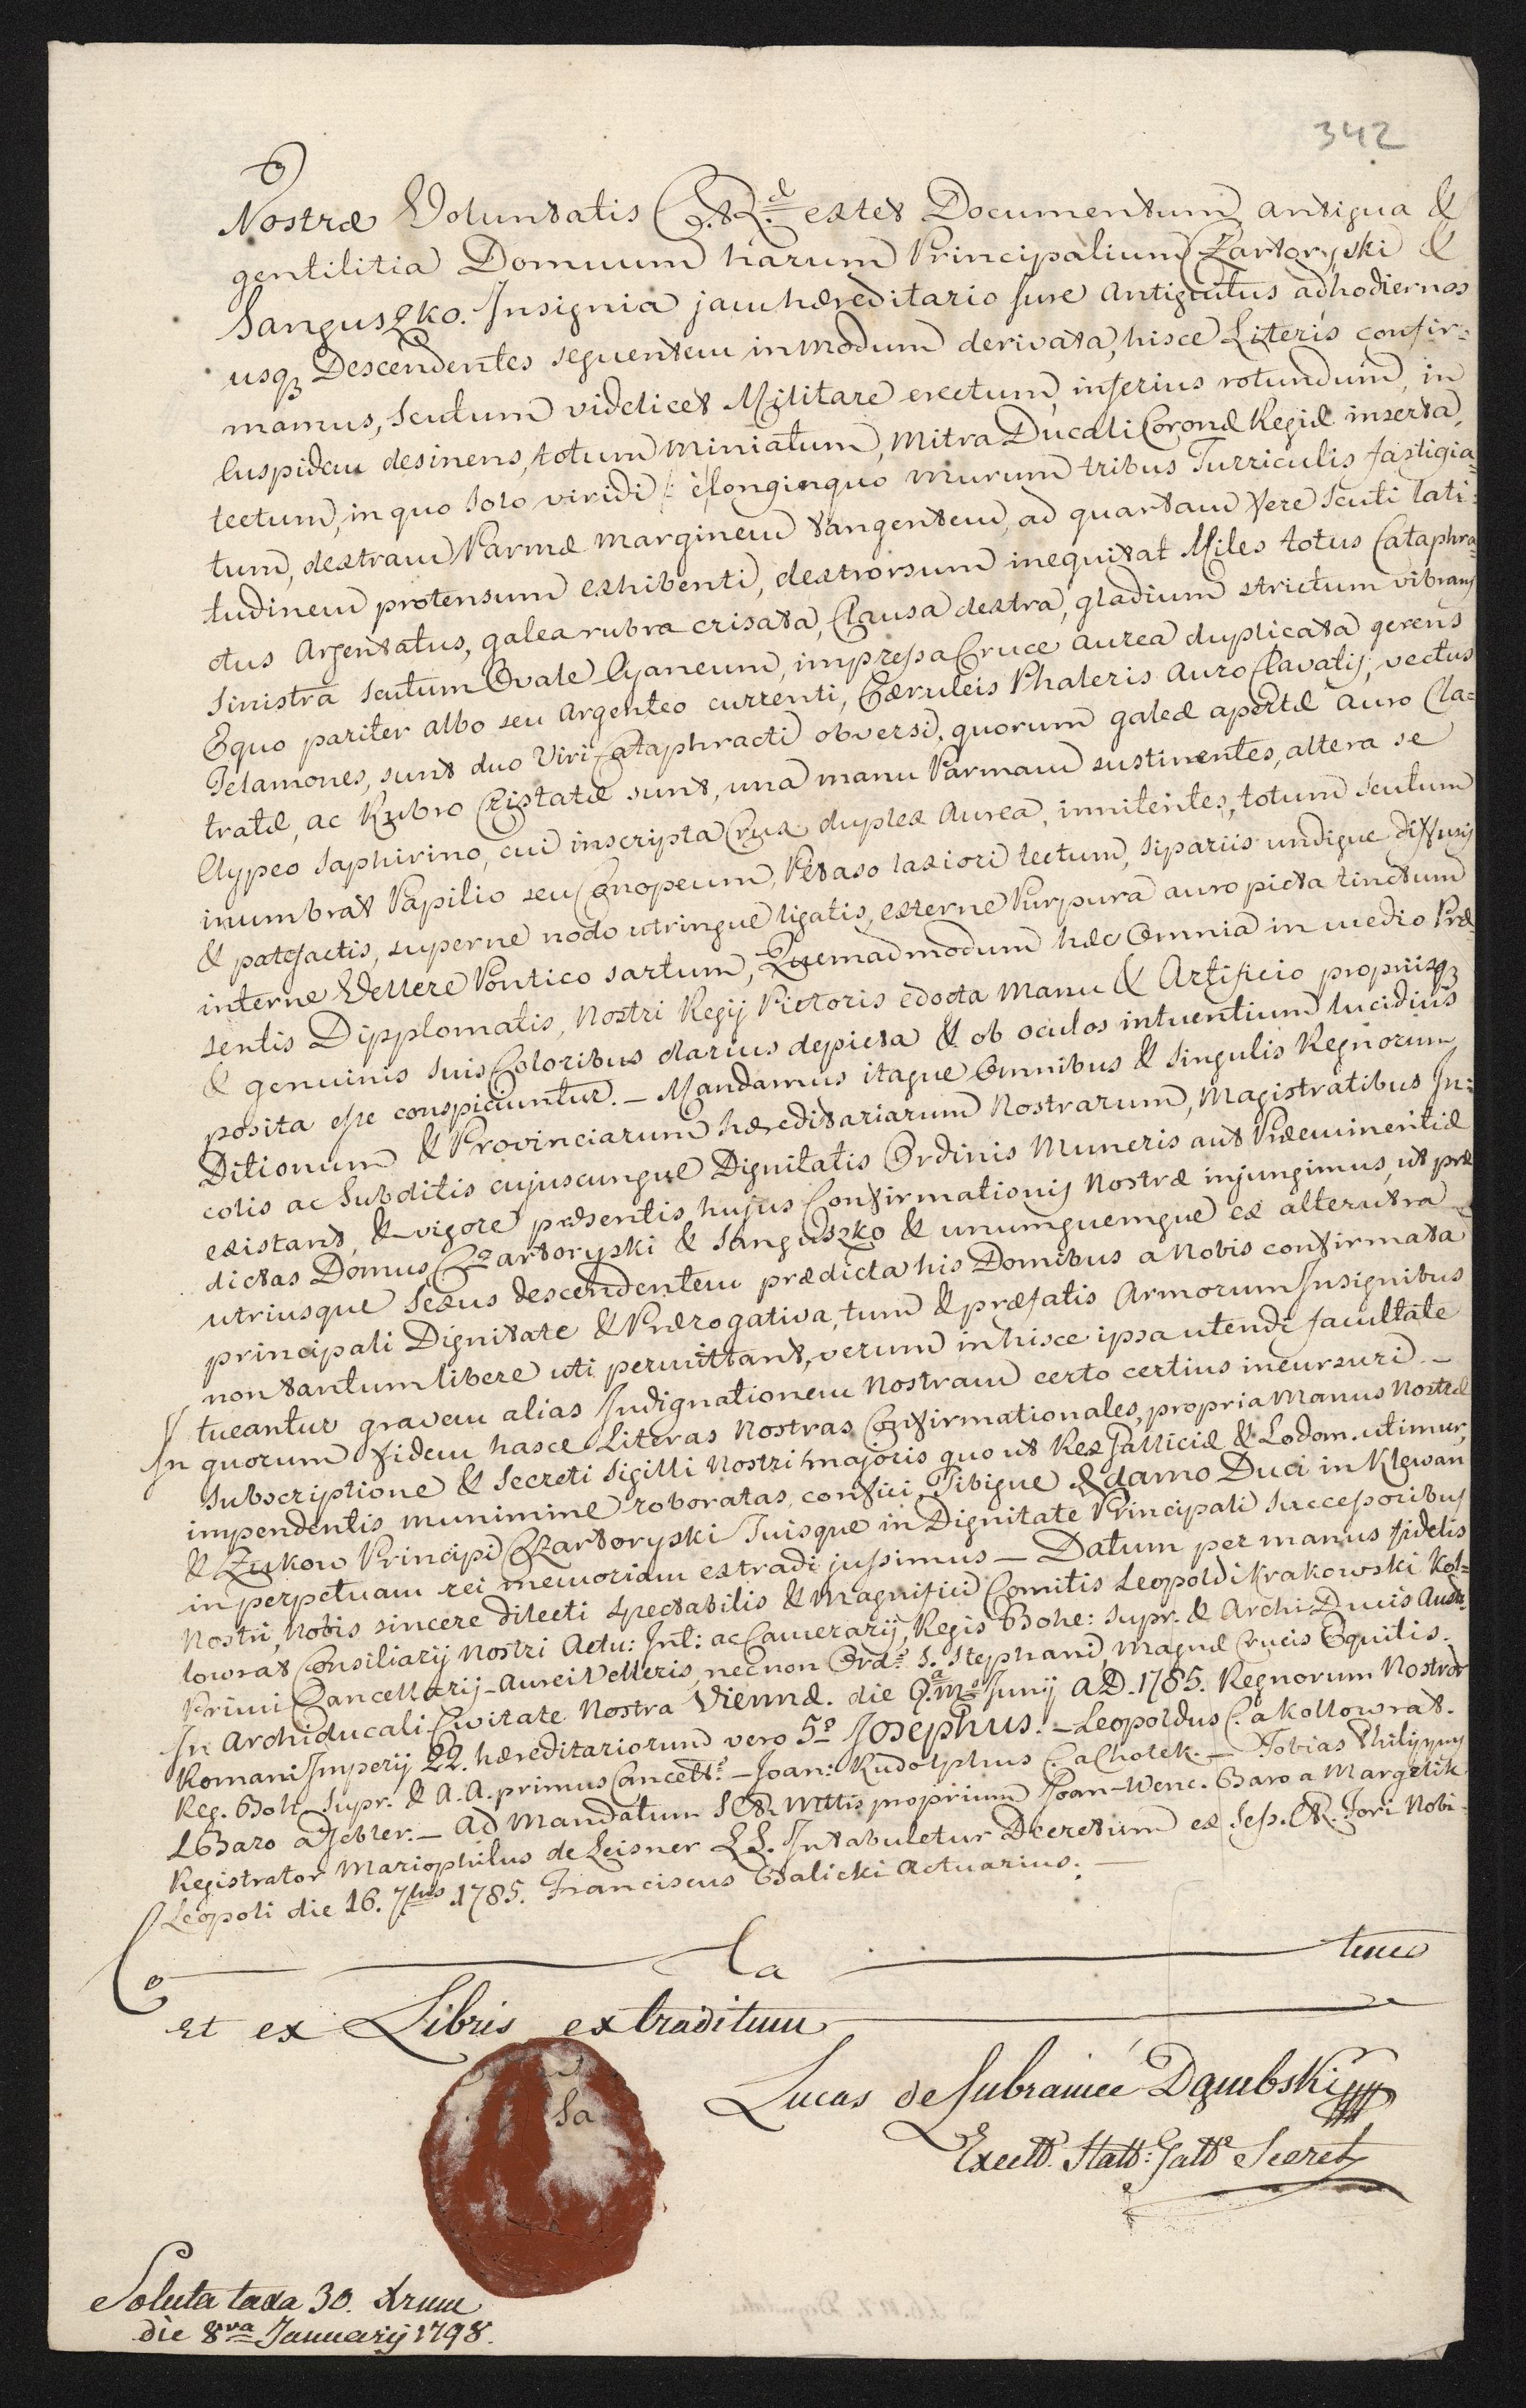 342
Nostræ Voluntatis C. R.d extet Documentum antiqua &
gentilitia Domuum harum Principalium Czartoryski &
Sanguszko. Insignia jam hæreditario Jure Antiquitus ad hodiernos
usq3 Descendentes sequentem in modum derivata, hisce Literis confir=
mamus, Scutum videlicet Militare erectum, inferius rotundum, in
Cuspidem desinens, totum miniatum, Mitra Ducali Coronæ Regiæ inserta,
tectum, in quo solo viridi è longinquo murum tribus Turriculis fastigia=
tum, dextram Parmæ marginem tangentem, ad quartam fere Scuti lati=
tudinem protensum exhibenti, dextrorsum inequitat Miles totus Cataphra=
ctus Argentatus, galea rubra crisata, Clausa dextra, gladium strictum vibrans
Sinistra scutum Ovale Cyaneum, impressa Cruce aurea duplicata gerens
Equo pariter albo seu Argenteo currenti, Cæruleis Phaleris Auro Clavatis, vectus
Telamones, sunt duo Viri Cataphracti obversi, quorum galeæ apertæ Auro Cla=
tratæ, ac Rubro Cristatæ sunt, una manu Parmam sustinentes, altera se
Clypeo Saphirino, cui inscripta Crux duplex Aurea, innitentes, totum Scutum
inumbrat Papilio seu Conopeum, Petaso laxiori tectum, sipariis undique diffusis
& patefactis, superne nodo utrinque ligatis, externe Purpura auro picta tinctum
interne Vellere Pontico sartum, Quemadmodum hæc Omnia in medio Præ=
sentis Dipplomatis, Nostri Regij Pictoris edocta Manu & Artificio propriisq3
& genuinis suis Coloribus clarius depicta & ob oculos intuentium lucidius
posita esse conspiciuntur. _ Mandamus itaque Omnibus & Singulis Regnorum
Ditionum & Provinciarum hæreditariarum Nostrarum, Magistratibus In=
colis ac Subditis cujuscunque Dignitatis Ordinis Muneris aut Præeminentiæ
existant, & vigore præsentis hujus Confirmationis Nostræ injungimus, ut præ
dictas Domus Czartoryski & Sanguszko & unumquemque ex alterutra
utriusque Sexus descendentem prædicta his Domibus a Nobis confirmata
principali Dignitate & Prærogativa, tum & præfatis Armorum Insignibus
non tantum libere uti permittant, verum in hisce ipsa utendi facultate
tueantur gravem alias Indignationem Nostram certo certius incursuri _
In quorum fidem hasce Literas Nostras Confirmationales, propria Manus Nostræ
Subscriptione & Secreti Sigilli Nostri majoris quo ut Rex Galliciæ & Lodom. utimur,
impendentis munimine roboratas, confici, Tibique Adamo Duci in Klewan
& Zukow Principi Czartoryski Tuisque in Dignitate Principali Successoribus
in perpetuam rei memoriam extradi jussimus _ Datum per manus fidelis
Nostri, Nobis sincere dilecti Spectabilis & Magnifici Comitis Leopoldi Krakowski Kol=
lowrat Consiliarij Nostri Actu: Int: ac Camerarij, Regis Bohe: Supr. & Archi Ducis Austr:
Primi Cancellarij Aurei Velleris, nec non Ord.s S. Stephani, Magnæ Crucis Equitis.
In Archiducali Civitate Nostra Viennæ. die 9.a M.s Junij A.D. 1785. Regnorum Nostror
Romani Imperij 22. hæreditariorum vero 5.o Josephus. _ Leopoldus C. a Kollowrat.
Reg. Boh. Supr. & A. A. primus Cancell.s _ Joan: Rudolphus C. a Chotek. _ Tobias Philippus
L Baro a Gebler. _ Ad Mandatum S C R. Mttis proprium Joan-Wenc. Baro a Margelik
Registrator Mariophilus de Leisner L S. Intabuletur Decretum ex Sess. C R. Fori Nobi
Leopoli die 16. 7bris 1785. Franciscus Galicki Actuarius. _
La tum
Et ex Libris extraditum
Lucas de Lubraniec Dąmbski
Sa
Soluta taxa 30. Xrum
die 8va Januarij 1798.